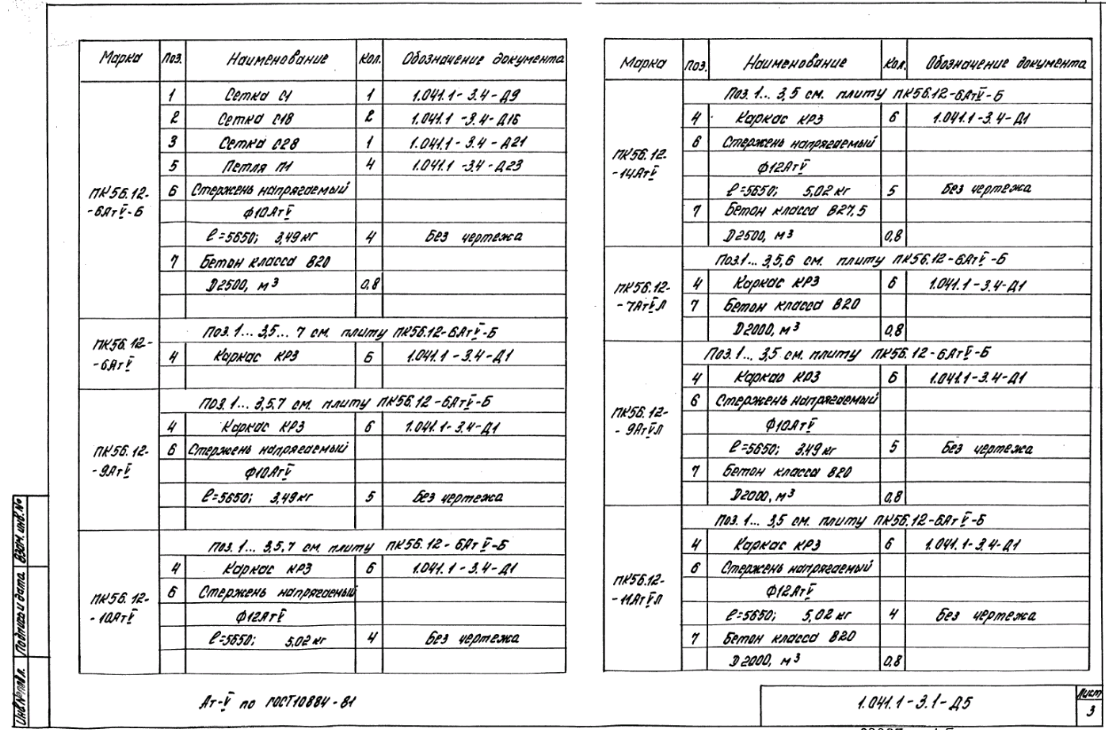 Марка Поз. Наименование Кол. Обозначение документа
ПК56.12-
-6АтV-Б
1 Сетка С1 1 1.041.1-3.4-Д9
2 Сетка С18 2 1.041.1-3.4-Д16
3 Сетка С28 1 1.041.1-3.4-Д21
5 Петля П1 4 1.041.1-3.4-Д23
6 Стержень напрягаемый
ф10АтV
ℓ=5650; 3,49 кг 4 Без чертежа
7 Бетон класса В20
D2500, м3 0,8
Поз. 1... 3,5... 7 см. плиту ПК56.12-6АтV-Б
ПК56.12-
-6АтV
4 Каркас КР3 6 1.041.1-3.4-Д1
Поз. 1... 3,5,7 см. плиту ПК56.12-6АтV-Б
ПК56.12-
-9АтV
4 Каркас КР3 6 1.041.1-3.4-Д1
6 Стержень напрягаемый
ф10АтV
ℓ=5650; 3,49 кг 5 Без чертежа
Поз. 1... 3,5,7 см. плиту ПК56.12-6АтV-Б
ПК56.12-
-10АтV
4 Каркас КР3 6 1.041.1-3.4-Д1
6 Стержень напрягаемый
ф12АтV
ℓ=5650; 5,02 кг 4 Без чертежа
Ат-V по ГОСТ10884-81
Марка Поз. Наименование Кол. Обозначение документа
Поз. 1... 3,5 см. плиту ПК56.12-6АтV-Б
ПК56.12-
-14АтV
4 Каркас КР3 6 1.041.1-3.4-Д1
6 Стержень напрягаемый
ф12АтV
ℓ=5650; 5,02 кг 5 Без чертежа
7 Бетон класса В27,5
D2500, м3 0,8
Поз.1... 3,5,6 см. плиту ПК56.12-6АтV-Б
ПК56.12-
-7АтVЛ
4 Каркас КР3 6 1.041.1-3.4-Д1
7 Бетон класса В20
D2000, м3 0,8
Поз. 1... 3,5 см. плиту ПК56.12-6АтV-Б
ПК56.12-
-9АтVЛ
4 Каркас КР3 6 1.041.1-3.4-Д1
6 Стержень напрягаемый
ф10АтV
ℓ=5650; 3,49 кг 5 Без чертежа
7 Бетон класса В20
D2000, м3 0,8
Поз. 1... 3,5 см. плиту ПК56.12-6АтV-Б
ПК56.12-
-11АтVЛ
4 Каркас КР3 6 1.041.1-3.4-Д1
6 Стержень напрягаемый
ф12АтV
ℓ=5650; 5,02 кг 4 Без чертежа
7 Бетон класса В20
D2000, м3 0,8
1.041.1-3.1-Д5
Лист
3
Инв.№подл. Подпись и дата Взам. инв.№